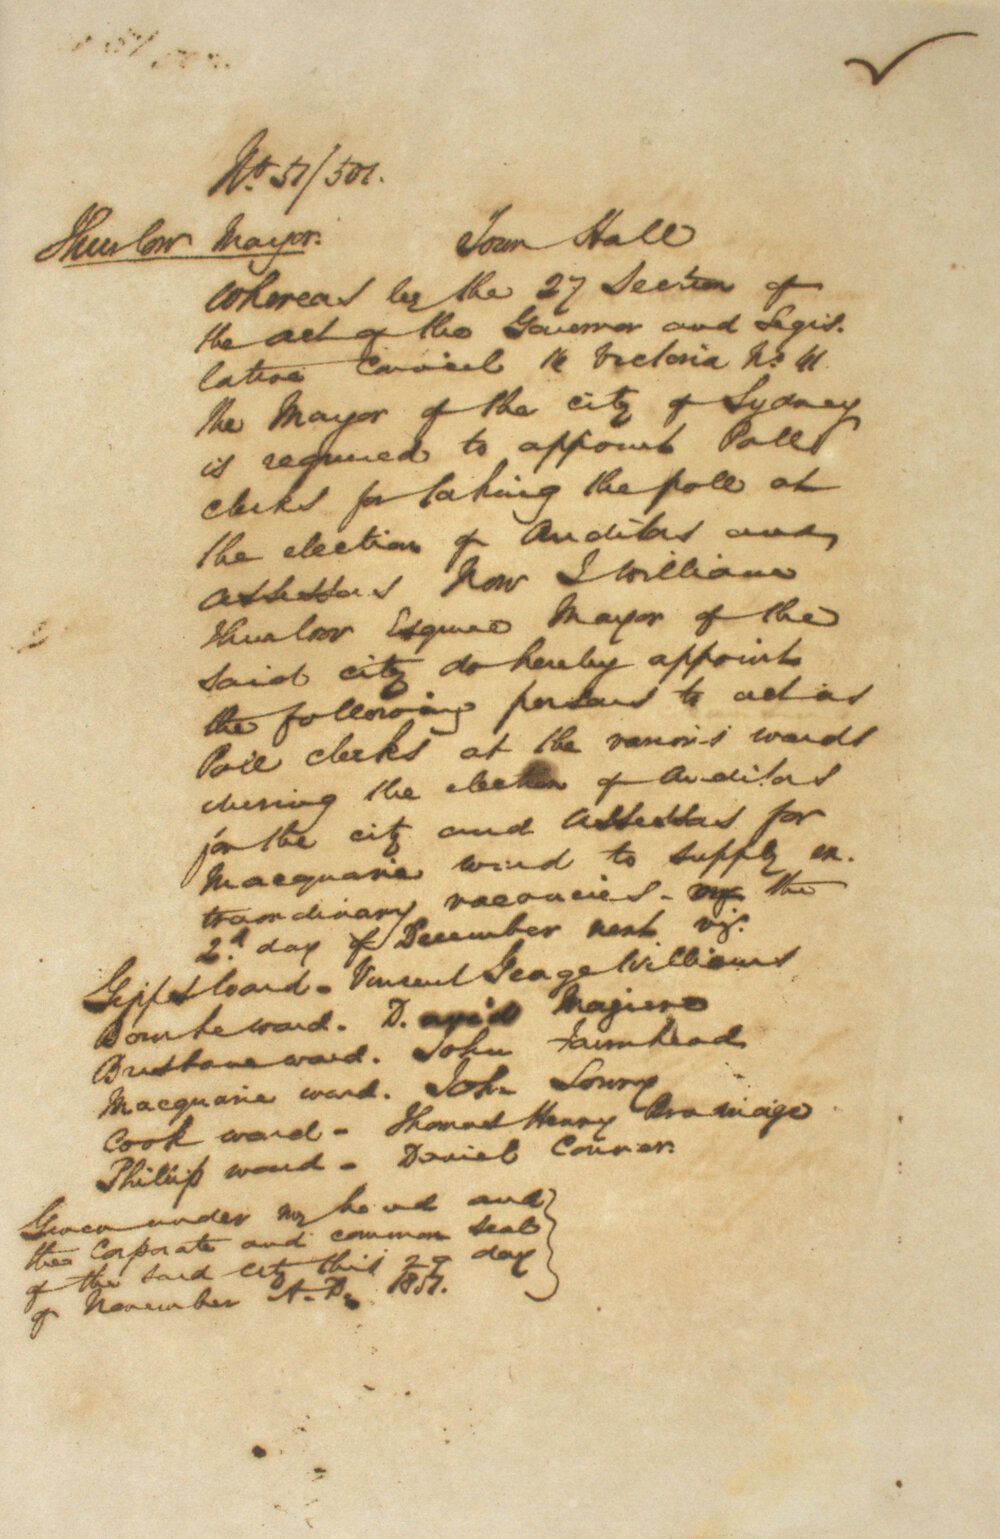 No. 51/501.
Thurlow Mayor. Town Hall
Whereas by the 27 Section of
the act of the Governor and Legis-
lative Council 14 Victoria No 41
the Mayor of the city of Sydney
is required to appoint Poll
clerks for taking the poll at
the election of Auditors and
assessors Now I William
Thurlow Esquire Mayor of the
said city do hereby appoint
the following persons to act as
Poll clerks at the various wards
during the election of Auditors
for the city and assessors for
Macquarie ward to supply ex-
traordinary vacancies - the
2d day of December next viz.
Gipps Ward - Vincent George Williams
Bourke ward - David
Brisbane ward - John Fairnhead
Macquarie ward - John Lowry
Cook ward - Thomas Henry
Phillip ward - Daniel Conner.
Given under my hand and
the Corporate and common seal
of the said city this 29 day
of November A.D. 1851.